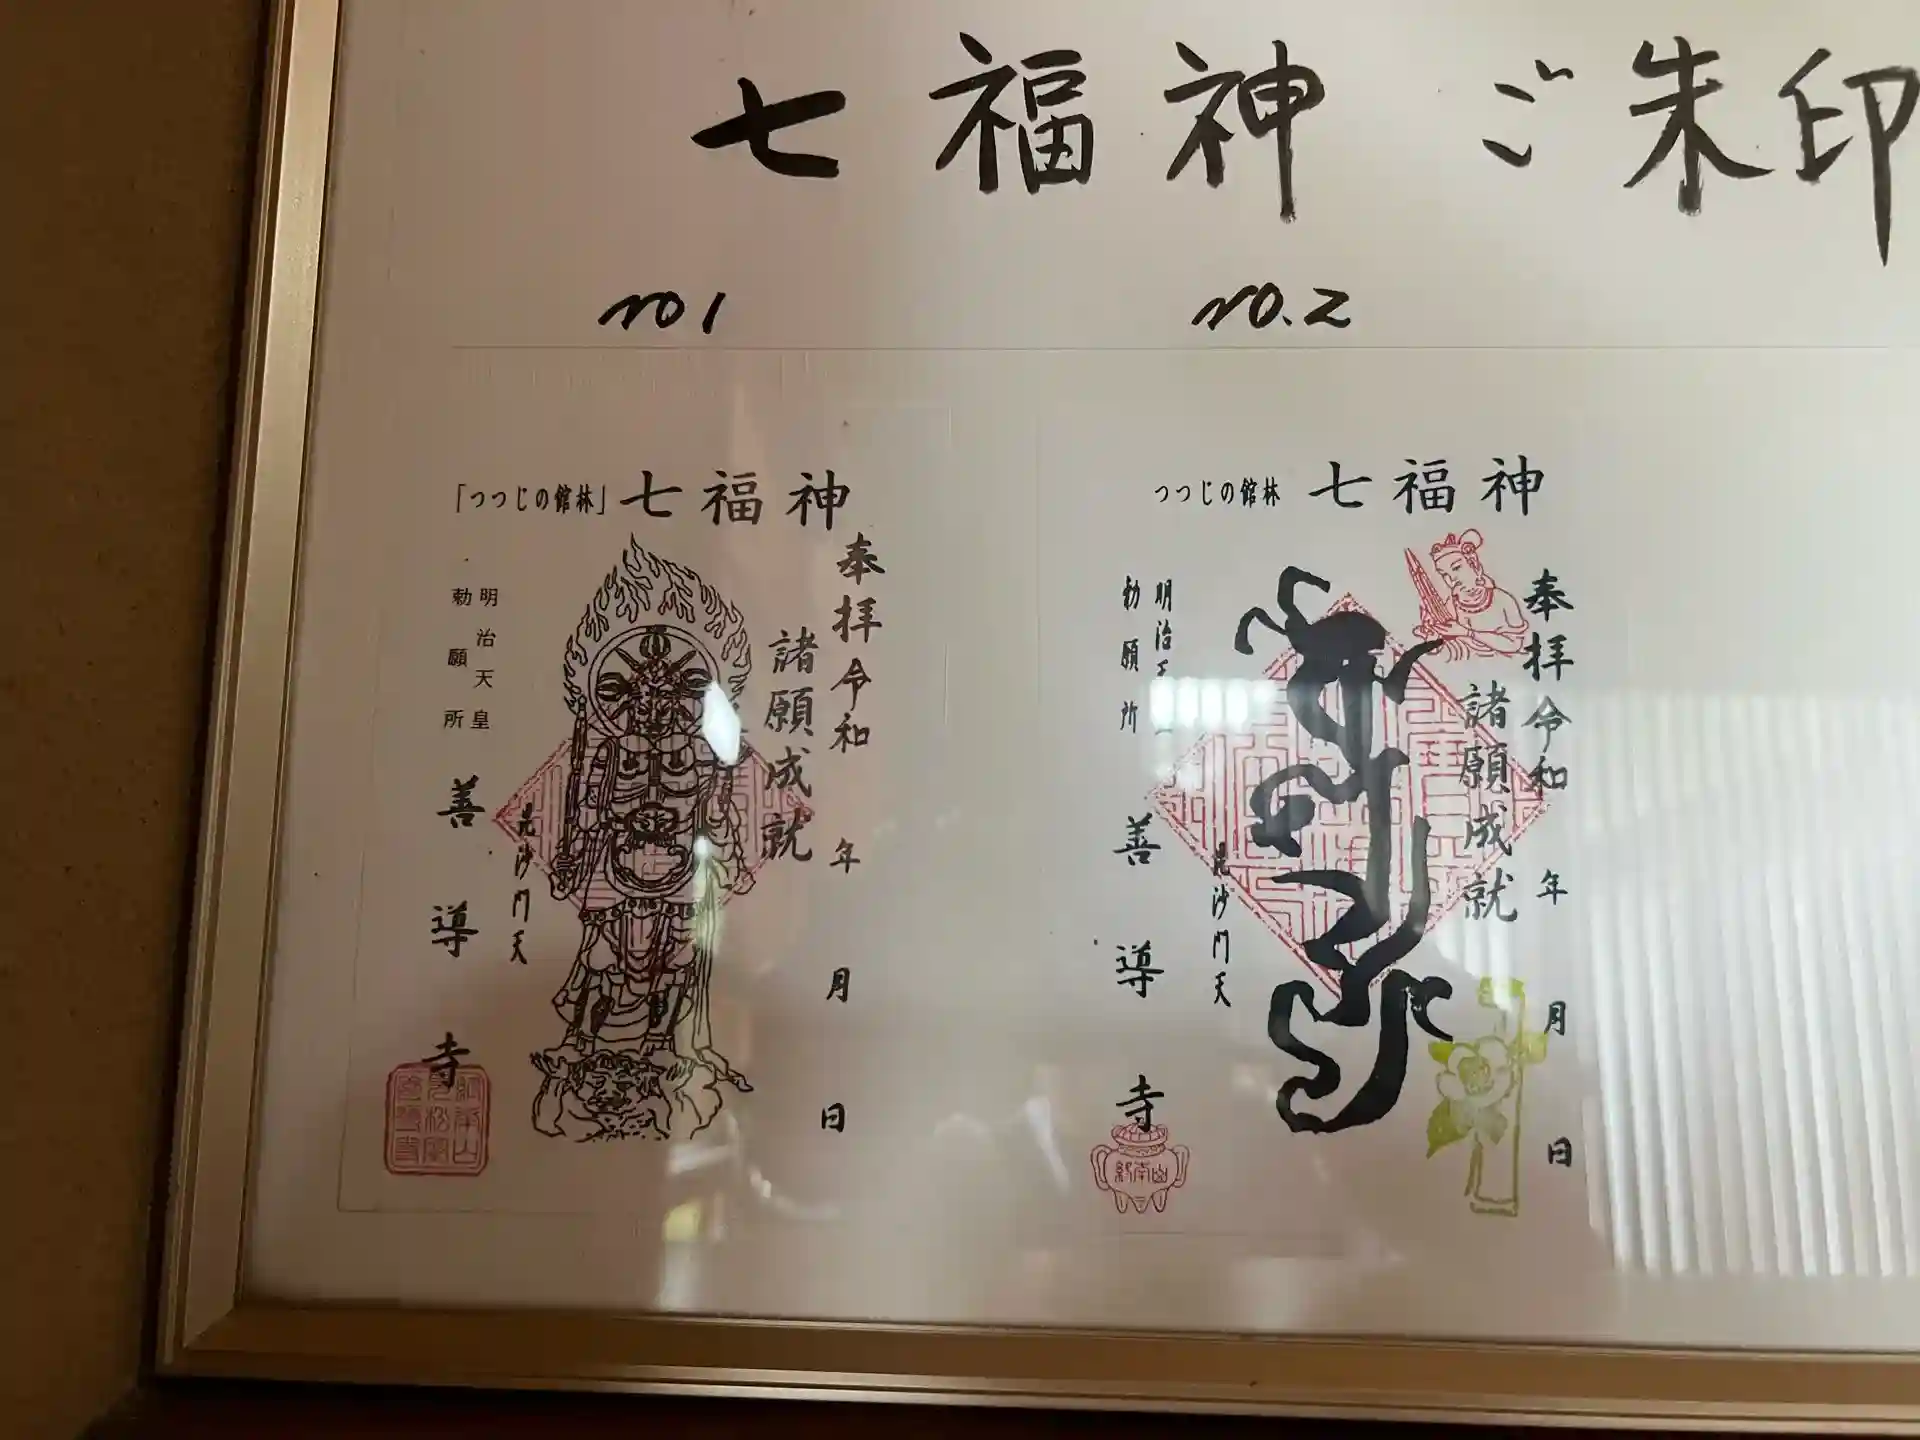 七福神 ご朱印
no 1
「つつじの館林」七福神
奉拝令和 年 月 日
諸願成就
毘沙門天
明治天皇
勅願所
善導寺
no.2
つつじの館林 七福神
奉拝令和 年 月 日
諸願成就
毘沙門天
明治天
勅願所
善導寺
終南山